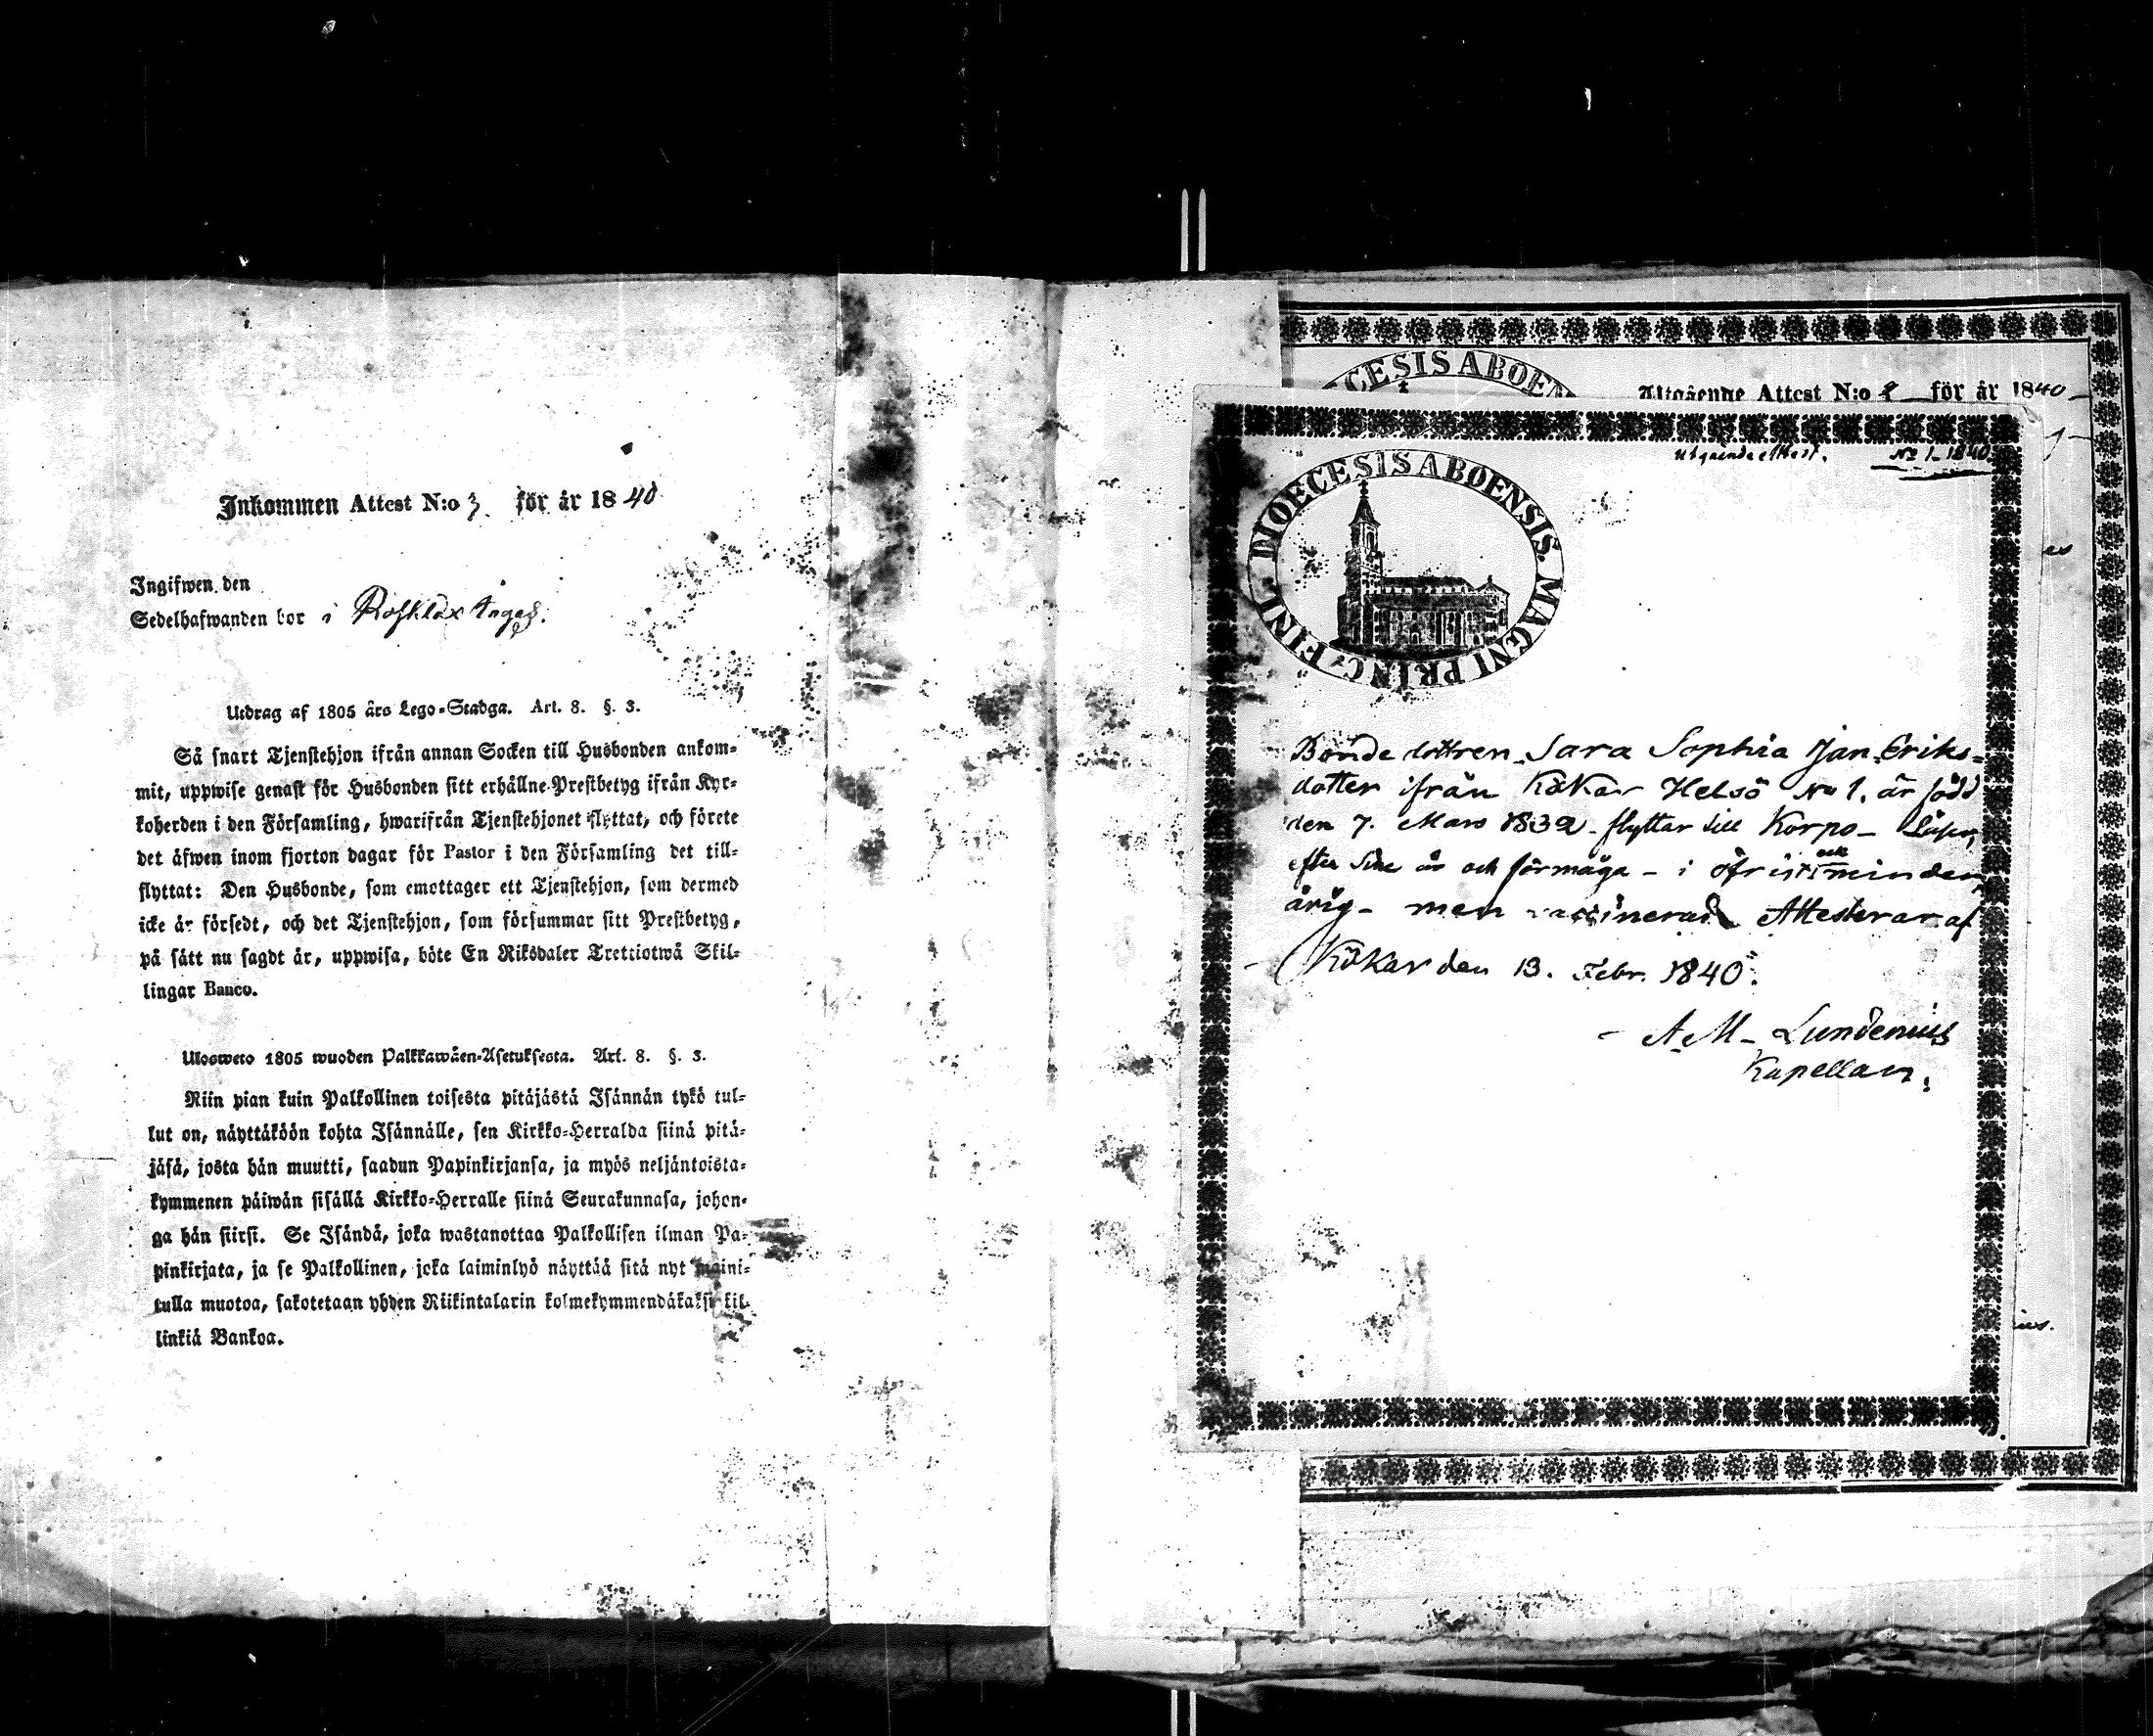 Inkommen Attest N:o 3. för år 1840
Ingifwen den
Sedelhafwanden bor i Rosklax Ångas.
Utdrag af 1805 års Lego-Stadga. Art. 8. §. 3.
Så snart Tjenstehjon ifrån annan Socken till Husbonden ankom-
mit, uppwise genast för Husbonden sitt erhållne Prestbetyg ifrån Kyr-
koherden i den Församling, hwarifrån Tjenstehjonet flyttat, och förete
det åfwen inom fjorton dagar för Pastor i den Församling det till-
flyttat: Den Husbonde, som emottager ett Tjenstehjon, som dermed
icke är försedt, och det Tjenstehjon, som försummar sitt Prestbetyg,
på sätt nu sagdt är, uppwisa, böte En Riksdaler Trettiotwå Skil-
lingar Banco.
Ulosweto 1805 wuoden Palkkawäen-Asetuksesta. Art. 8. §. 3.
Niin pian kuin Palkollinen toisesta pitäjästä Isännän tykö tul-
lut on, näyttäköön kohta Isännälle, sen Kirkko-Herralda siinä pitä-
jäsä, josta hän muutti, saadun Papinkirjansa, ja myös neljäntoista-
kymmenen päiwän sisällä Kirkko-Herralle siinä Seurakunnasa, johon-
ga hän siirsi. Se Isändä, joka wastanottaa Palkollisen ilman Pa-
pinkirjata, ja se Palkollinen, joka laiminlyö näyttää sitä nyt maini-
tulla muotoa, sakotetaan yhden Riikintalarin kolmekymmendäkaksi kil-
linkiä Bankoa.
CESIS ABOEN
Utgående Attest N:o 2 för år 1840
Utgående attest. No 1 1840.
DIOECESIS ABOENSIS. MAGNI PRINC. FINL.
Bonde dottren Sara Sophia Jan Eriks-
dotter ifrån Kökar Helsö No 1. är född
den 7. Mars 1832 flyttar till Korpo - Läser,
efter sine år och förmåga - i öfrigt och minder
årig - men vaccinerad Attesterar af
Kökar den 13. Febr. 1840.
A. M. Lundenius
Kapellan.
es
ius.